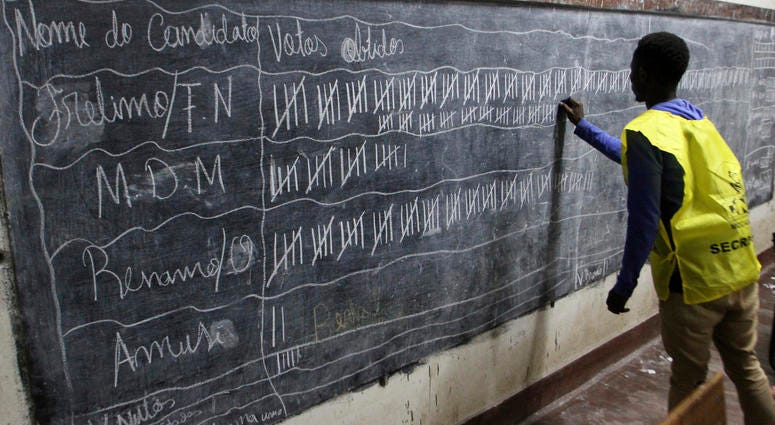 Nome do Candidato Votos obtidos
Frelimo/F.N
M.D.M
Renamo/O
Amusi
Nulos
SECRE